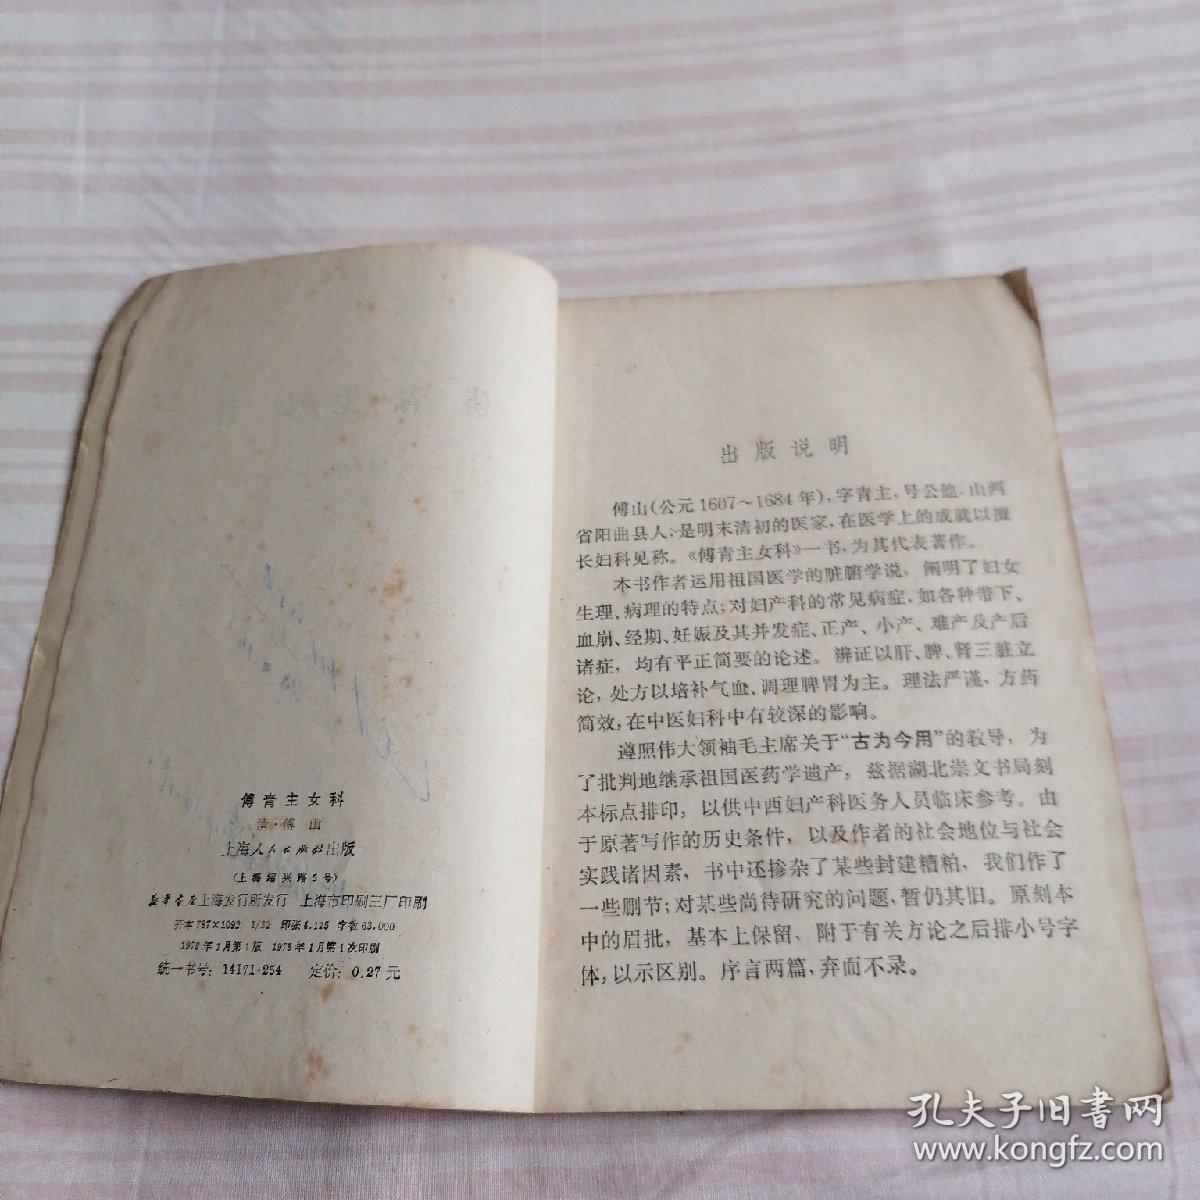 傅青主女科
清·傅山
上海人民出版社出版
(上海绍兴路5号)
新华书店上海发行所发行 上海市印刷三厂印刷
开本787×1092 1/32 印张4.125 字数63,000
1978年1月第1版 1978年1月第1次印刷
统一书号：14171·254 定价：0.27元
出版说明
傅山(公元1607～1684年)，字青主，号公他，山西
省阳曲县人，是明末清初的医家，在医学上的成就以擅
长妇科见称。《傅青主女科》一书，为其代表著作。
本书作者运用祖国医学的脏腑学说，阐明了妇女
生理、病理的特点；对妇产科的常见病症，如各种带下、
血崩、经期、妊娠及其并发症、正产、小产、难产及产后
诸症，均有平正简要的论述。辨证以肝、脾、肾三脏立
论，处方以培补气血、调理脾胃为主。理法严谨，方药
简效，在中医妇科中有较深的影响。
遵照伟大领袖毛主席关于“古为今用”的教导，为
了批判地继承祖国医药学遗产，兹据湖北崇文书局刻
本标点排印，以供中西妇产科医务人员临床参考。由
于原著写作的历史条件，以及作者的社会地位与社会
实践诸因素，书中还掺杂了某些封建糟粕，我们作了
一些删节；对某些尚待研究的问题，暂仍其旧。原刻本
中的眉批，基本上保留，附于有关方论之后排小号字
体，以示区别。序言两篇，弃而不录。
孔夫子旧书网
www.kongfz.com